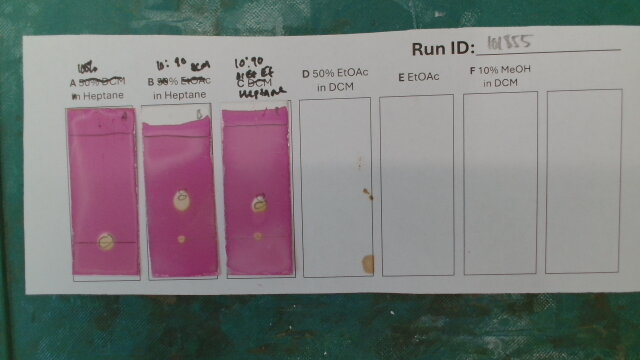 Run ID: 101855
100%
A 50% DCM
in Heptane
10:90 DCM
B 30% EtOAc
in Heptane
10:90
C DCM
Heptane
D 50% EtOAc
in DCM
E EtOAc
F 10% MeOH
in DCM